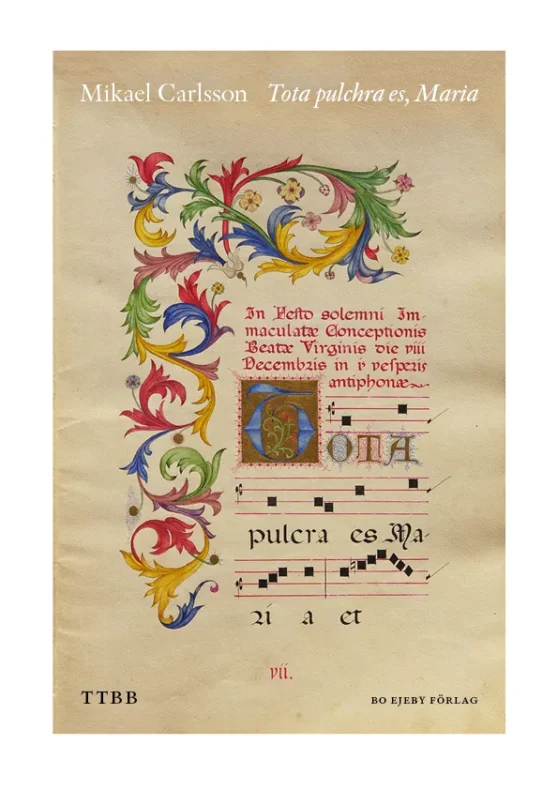 Mikael Carlsson Tota pulchra es, Maria
In Festo solemni Im-
maculatæ Conceptionis
Beatæ Virginis die viii
Decembris in iis vesperis
antiphonæ
TOTA
pulcra es Ma
ri a et
vii.
TTBB
BO EJEBY FÖRLAG